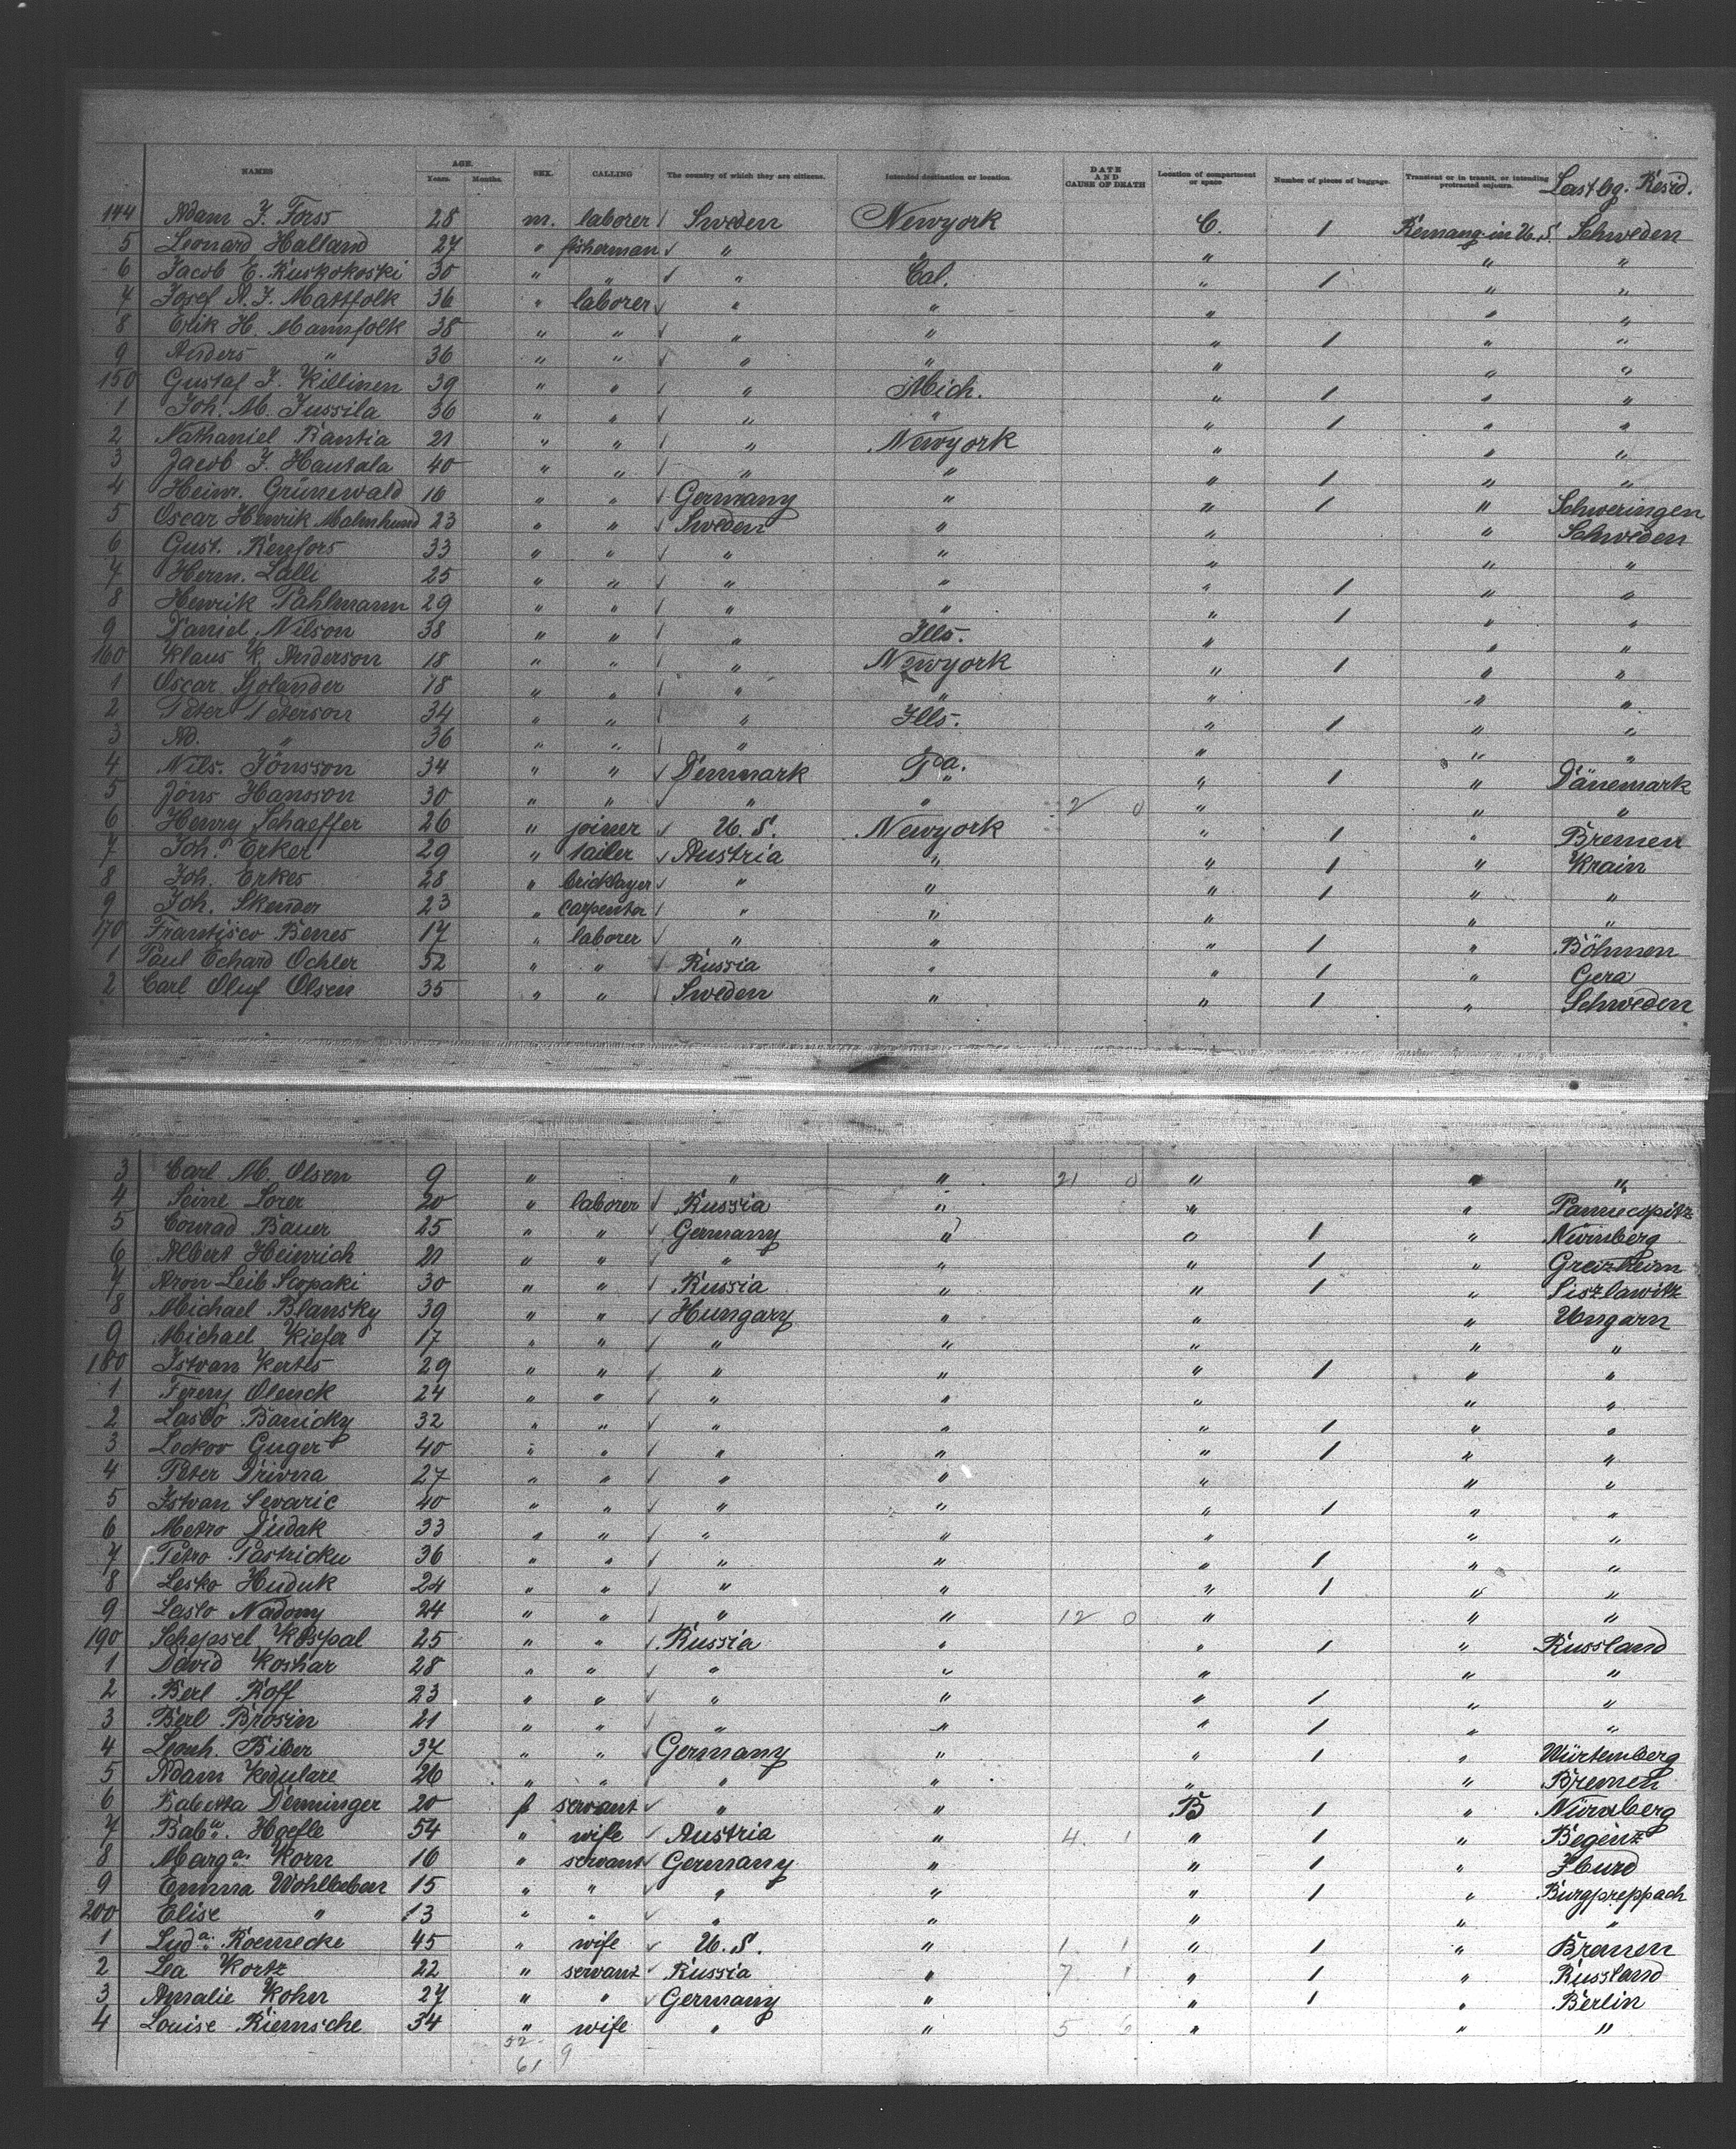 NAMES AGE. Years. Months. SEX. CALLING The country of which they are citizens. Intended destination or location. DATE AND CAUSE OF DEATH Location of compartment or space Number of pieces of baggage. Transient or in transit, or intending protracted sojourn. Last lg. Resid.
144 Adam J. Forss 28 m. laborer Sweden Newyork C. 1 Remang. in U.S. Schweden
5 Leonard Halland 27 " fisherman " " " " "
6 Jacob E. Kuskokoski 30 " " " Cal. " 1 " "
7 Josef A. J. Mattfolk 36 " laborer " " " " "
8 Erik H. Mannfolk 38 " " " " " 1 " "
9 Anders " 36 " " " " " " "
150 Gustaf J. Killinen 39 " " " Mich. " 1 " "
1 Joh. M. Jussila 36 " " " " " 1 " "
2 Nathaniel Rantia 21 " " " Newyork " " "
3 Jacob J. Hautala 40 " " " " " 1 " "
4 Heinr. Grünewald 16 " " Germany " " 1 " Schweringen
5 Oscar Henrik Malmlund 23 " " Sweden " " " Schweden
6 Gust. Renfors 33 " " " " " " "
7 Herm. Lalli 25 " " " " " 1 " "
8 Henrik Pahlmann 29 " " " " " 1 " "
9 Daniel Nilson 38 " " " Ills. " " "
160 Klaus K. Anderson 18 " " " Newyork " 1 " "
1 Oscar Sjolander 18 " " " " " " "
2 Peter Peterson 34 " " " Ills. " 1 " "
3 Ad. " 36 " " " " " " "
4 Nils. Jönsson 34 " " Denmark Pa. " 1 " Dänemark
5 Jöns Hansson 30 " " " " 2 0 " " "
6 Henry Schaeffer 26 " joiner U.S. Newyork " 1 " Bremen
7 Joh. Erker 29 " tailer Austria " " 1 " Krain
8 Joh. Erkes 28 " bricklayer " " " 1 " "
9 Joh. Skender 23 " carpenter " " " " "
170 Frantisco Benes 17 " laborer " " " 1 " Böhmen
1 Paul Echard Ochler 52 " " Russia " " 1 " Gera
2 Carl Oluf Olsen 35 " " Sweden " " 1 " Schweden
3 Carl M. Olsen 9 " " " 21 0 " " "
4 Lorer 20 " laborer Russia " " "
5 Conrad Bauer 25 " " Germany " " 1 " Nürnberg
6 Albert Heinrich 21 " " " " " 1 " Greizheim
7 Aron Leib Scopaki 30 " " Russia " " 1 " Siszlawitz
8 Michael Blansky 39 " " Hungary " " " Ungarn
9 Michael Kiefer 17 " " " " " " "
180 Istvan Kertes 29 " " " " " 1 " "
1 Fereny Olenck 24 " " " " " " "
2 Laslo Banicky 32 " " " " " 1 " "
3 Leckov Guger 40 " " " " " 1 " "
4 Peter Drivna 27 " " " " " " "
5 Istvan Sevaric 40 " " " " " 1 " "
6 Metro Dudak 33 " " " " " " "
7 Petro Pastricku 36 " " " " " 1 " "
8 Lesko Huduk 24 " " " " " 1 " "
9 Laslo Nadony 24 " " " " 12 0 " " "
190 Schepsel Kospal 25 " " Russia " " 1 " Russland
1 David Koshar 28 " " " " " " "
2 Berl Roff 23 " " " " " 1 " "
3 Berl Brosin 21 " " " " " 1 " "
4 Leonh. Biber 37 " " Germany " " 1 " Würtemberg
5 Adam Kedulare 26 " " " " " " Bremen
6 Babetta Denninger 20 f servant " " B 1 " Nürnberg
7 Baba. Hoefle 54 " wife Austria " 4 1 " 1 " Begenz
8 Marga. Korn 16 " servant Germany " " 1 "
9 Emma Wohlleben 15 " " " " " 1 " Burgpreppach
200 Elise " 13 " " " " " " "
1 Lyda. Roemecke 45 " wife U.S. " 1 1 " 1 " Bremen
2 Lea Kortz 22 " servant Russia " 7 1 " 1 " Russland
3 Amalie Kohn 27 " " Germany " " 1 " Berlin
4 Louise Riemsche 34 " wife " " 5 6 " " "
52 9
61